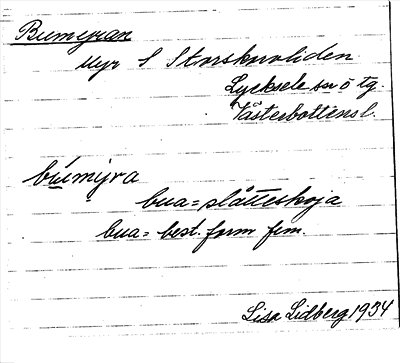 Bumyran
myr S Storskuvliden
Lycksele sn o tg.
Västerbottens l.
búmyra
bua = slåtteskoja
bua = best. form fem.
Lisa Lidberg 1934